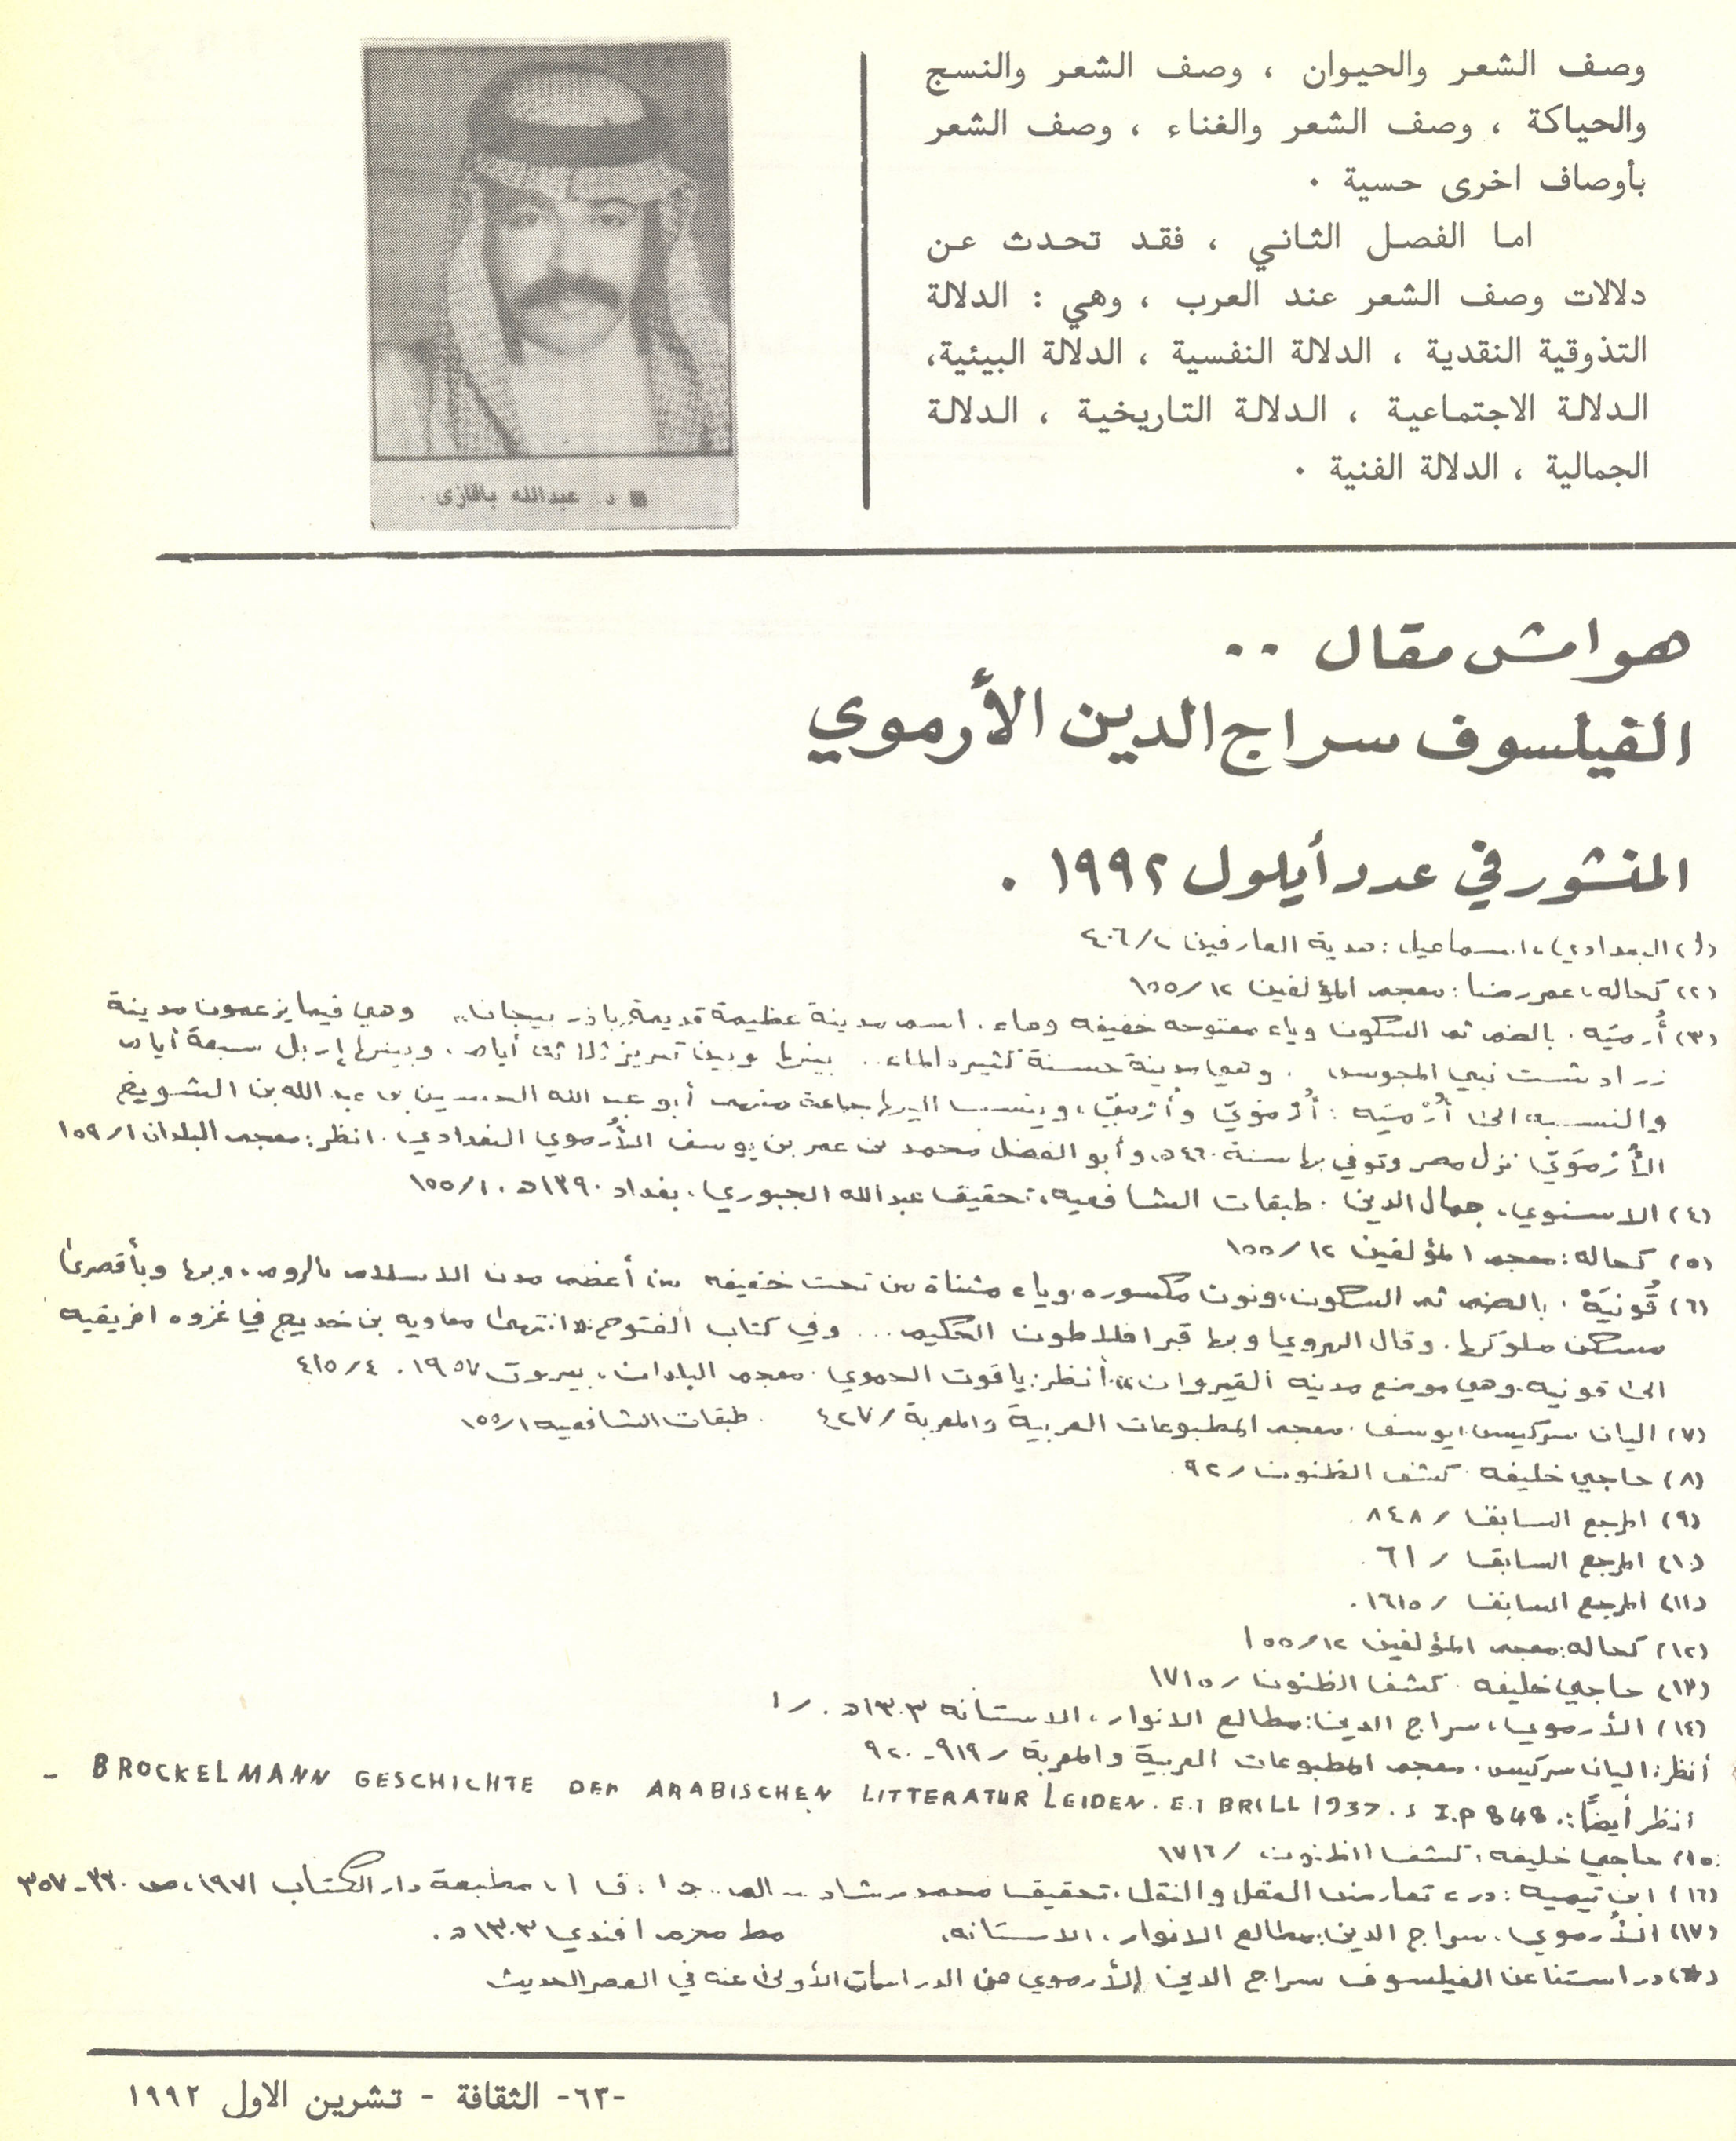 وصف الشعر والحيوان ، وصف الشعر والنسج
والحياكة ، وصف الشعر والغناء ، وصف الشعر
بأوصاف اخرى حسية ٠
اما الفصل الثاني ، فقد تحدث عن
دلالات وصف الشعر عند العرب ، وهي : الدلالة
التذوقية النقدية ، الدلالة النفسية ، الدلالة البيئية،
الدلالة الاجتماعية ، الدلالة التاريخية ، الدلالة
الجمالية ، الدلالة الفنية ٠
■ د. عبدالله باقازى .
هوامش مقال ..
الفيلسوف سراج الدين الأرموي
المنشور في عدد أيلول ١٩٩٢ .
(١) البغدادي، اسماعيل : هدية العارفين ٢/٤٠٦
(٢) كحاله، عمر رضا : معجم المؤلفين ١٢/١٥٥
(٣) أُرميَه . بالضم ثم السكون وياء مفتوحه خفيفه وهاء . اسم مدينة عظيمة قديمة باذربيجان،، وهي فيما يزعمون مدينة
زرادشت نبي المجوس . وهي مدينة حسنة كثيرة الماء .. بينها وبين تبريز ثلاثة أيام . وبينها إربل سبعة أيام
والنسبه الى أُرْميَه : أُرْمَوِيّ وأُرْمِيّ، وينسب اليها جماعة منهم أبو عبد الله الحسين بن عبد الله بن الشويخ
الأُرْمَوِيّ نزل مصر وتوفي بها سنة ٤٦٠ه، وأبو الفضل محمد بن عمر بن يوسف الأُرموي البغدادي . انظر: معجم البلدان ١/١٥٩
(٤) الاسنوي، جمال الدين . طبقات الشافعيه، تحقيق عبدالله الجبوري، بغداد ١٣٩٠ه . ١/١٥٥
(٥) كحاله : معجم المؤلفين ١٢/١٥٥
(٦) قُونيَهْ . بالضم ثم السكون، ونون مكسوره وياء مثناة من تحت خفيفه من أعظم مدن الاسلام بالروم، وبها وبأقصرى
مسكن ملوكها . وقال الهروي وبها قبر افلاطون الحكيم ... وفي كتاب الفتوح : «انتهى معاويه بن خديج في غزوه افريقيه
الى قونيه وهي موضع مدينه القيروان» أنظر: ياقوت الحموي . معجم البلدان، بيروت ١٩٥٧ . ٤/٤١٥
(٧) اليان سركيس، يوسف . معجم المطبوعات العربية والمعربة / ٤٢٧ . طبقات الشافعيه ١/١٥٥
(٨) حاجي خليفه . كشف الظنون / ٩٢ .
(٩) المرجع السابق / ٨٤٨ .
(١٠) المرجع السابق / ٦١ .
(١١) المرجع السابق / ١٦١٥ .
(١٢) كحاله : معجم المؤلفين ١٢/١٥٥
(١٣) حاجي خليفه . كشف الظنون / ١٧١٥
(١٤) الأرموي، سراج الدين : مطالع الانوار، الاستانه ١٣٠٣ه . / ١
أنظر: اليان سركيس . معجم المطبوعات العربية والمعربة / ٩١٩-٩٢٠
انظر أيضًا : BROCKELMANN GESCHICHTE DER ARABISCHEN LITTERATUR LEIDEN. E.J BRILL 1937. S I.P 848. -
(١٥) حاجي خليفه، كشف الظنون / ١٧١٦
(١٦) ابن تيميه : درء تعارض العقل والنقل، تحقيق محمد رشاد ج ١ : ق ١، مطبعة دار الكتاب ١٩٧١، ص ٣٢٠-٣٥٧
(١٧) الأُرموي، سراج الدين : مطالع الانوار، الاستانه، مط محرم افندي ١٣٠٣ه .
(*) دراستنا عن الفيلسوف سراج الدين الأرموي من الدراسات الأولى عنه في العصر الحديث
-٦٣- الثقافة - تشرين الاول ١٩٩٢